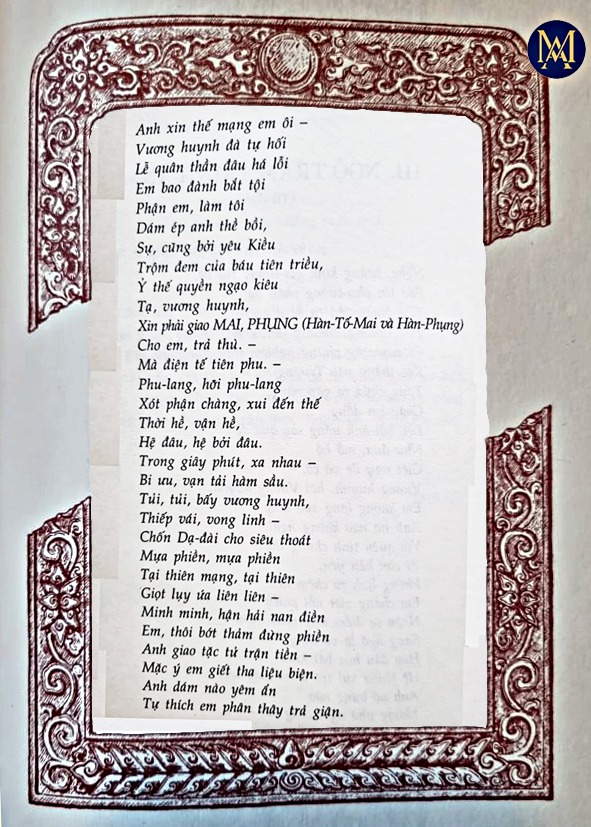 MA
Anh xin thế mạng em ôi –
Vương huynh đà tự hối
Lễ quân thần đâu há lỗi
Em bao đành bắt tội
Phận em, làm tôi
Dám ép anh thề bồi,
Sự, cũng bởi yêu Kiều
Trộm đem của báu tiên triều,
Ỷ thế quyền ngạo kiêu
Tạ, vương huynh,
Xin phải giao MAI, PHỤNG (Hàn-Tố-Mai và Hàn-Phụng)
Cho em, trả thù. –
Mà điện tế tiên phu. –
Phu-lang, hỡi phu-lang
Xót phận chàng, xui đến thế
Thời hề, vận hề,
Hệ đâu, hệ bởi đâu.
Trong giây phút, xa nhau –
Bi ưu, vạn tải hàm sầu.
Tủi, tủi, bấy vương huynh,
Thiếp vái, vong linh –
Chốn Dạ-đài cho siêu thoát
Mựa phiền, mựa phiền
Tại thiên mạng, tại thiên
Giọt lụy ứa liên liên –
Minh minh, hận hải nan điền
Em, thôi bớt thảm đừng phiền
Anh giao tặc tử trận tiền –
Mặc ý em giết tha liệu biện.
Anh dám nào yêm ẩn
Tự thích em phân thây trả giận.